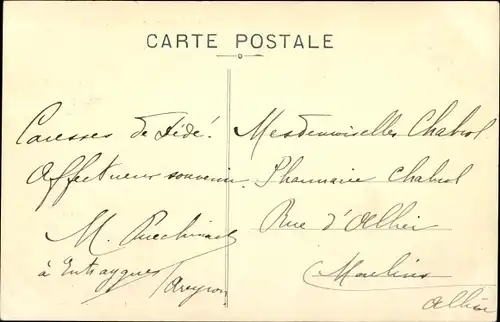 CARTE POSTALE
Caresses de Fédé!
Affectueux souvenir.
M.
à Entraygues
Aveyron
Mesdemoiselles Chabrol
Pharmacie Chabrol
Rue d'Allier
Moulins
Allier